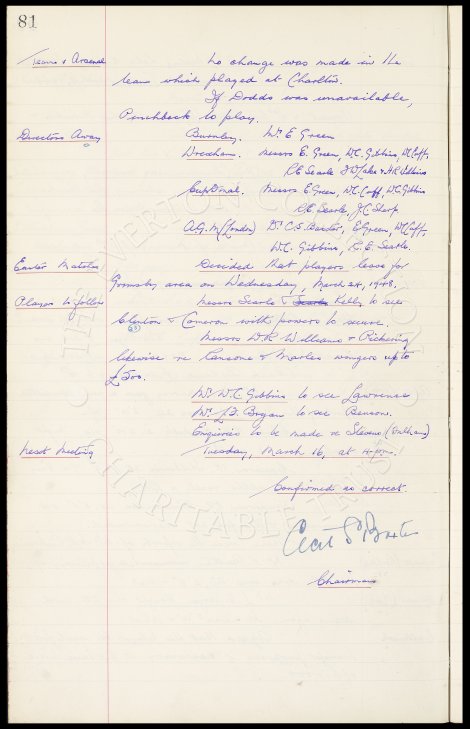 81
Team v Arsenal
No change was made in the
team which played at Charlton.
If Dodds was unavailable,
Pinchbeck to play.
Directors Away
Burnley. Mr E Green
Wrexham. Messrs E. Green, W.C. Gibbins, W.C. Cuff,
R.E. Searle & H.R. Williams
Cup Final. Messrs E Green, W.C. Cuff, W.C Gibbins
R.E. Searle, J.C. Sharp.
A.G.M (London) Dr. C.S. Baxter, E Green, W.C. Cuff,
W.C. Gibbins, R.E. Searle.
Easter Matches
Decided that players leave for
Formby area on Wednesday, March 24, 1948.
Players to follow
Messrs Searle & Searle Kelly to see
Clinton & Cameron with powers to secure.
Messrs W.R Williams & Pickering
likewise re Ransome & Marles wingers up to
£500.
Mr W.C. Gibbins to see Lawrence
Mr J.F. Bryan to see Benson.
Enquiries to be made re Stevens
Next Meeting.
Tuesday, March 16, at 4 p.m.
Confirmed as correct.
Cecil S Baxter
Chairman
THE EVERTON COLLECTION
CHARITABLE TRUST